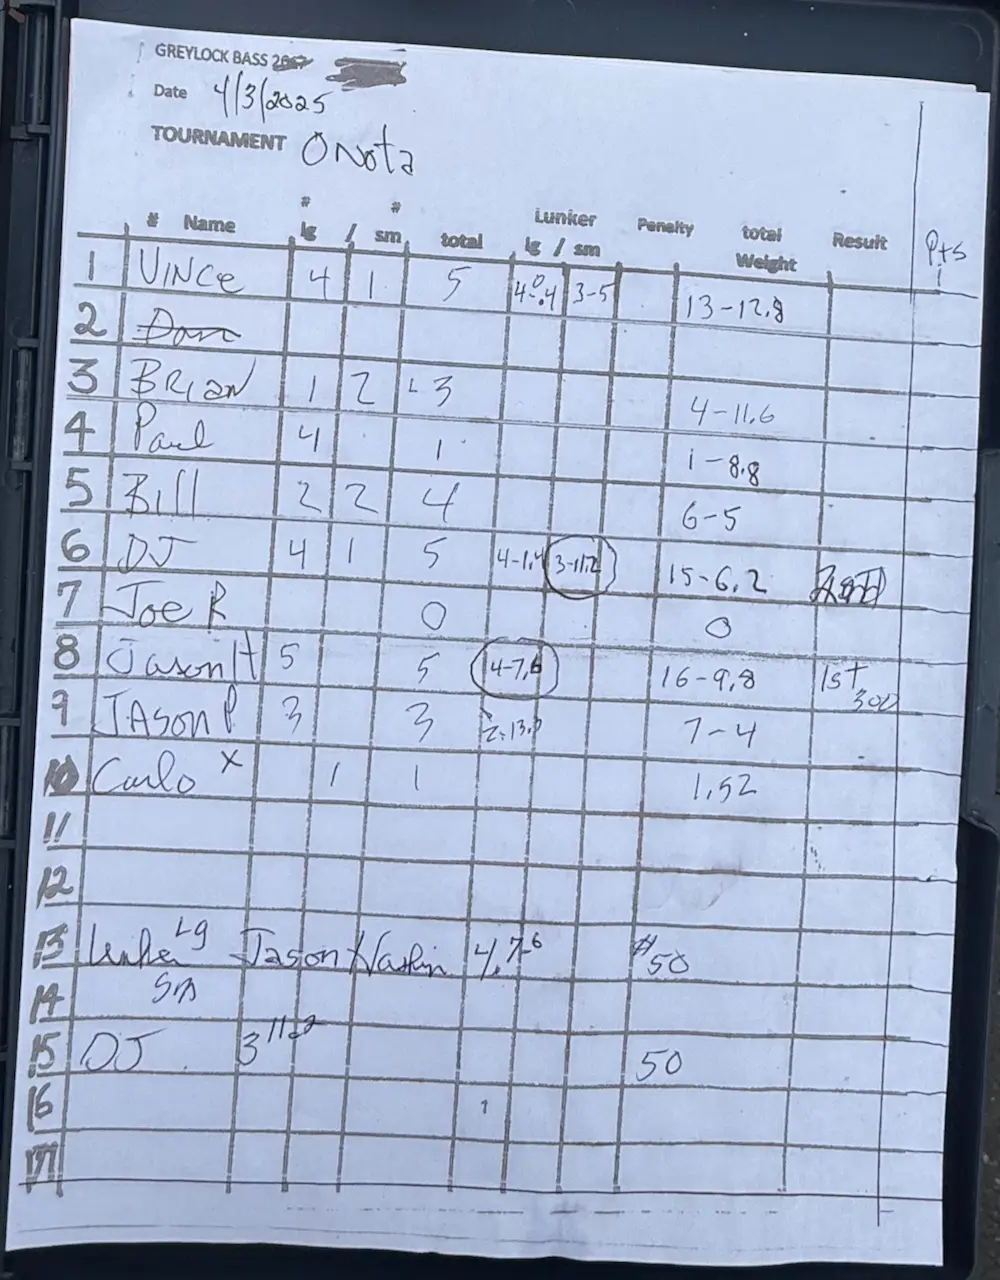 GREYLOCK BASS
Date 4/3/2025
TOURNAMENT ONota
# # Lunker
# Name lg / sm total lg / sm Penalty total Weight Result Pts
1 VINCE 4 1 5 4-0.4 3-5 13-12.8
2 Dan
3 BRIAN 1 2 3 4-11.6
4 Paul 4 1 1-8.8
5 Bill 2 2 4 6-5
6 DJ 4 1 5 4-1.4 3-11.2 15-6.2
7 Joe R 0 0
8 Jason H 5 5 4-7.6 16-9.8 1st 300
9 JASON P. 3 3 7-4
10 Carlo x 1 1 1.52
11
12
13 Lunker Lg Jason 4.7-6 $50
14 Sm
15 DJ 3 11.2 50
16
17